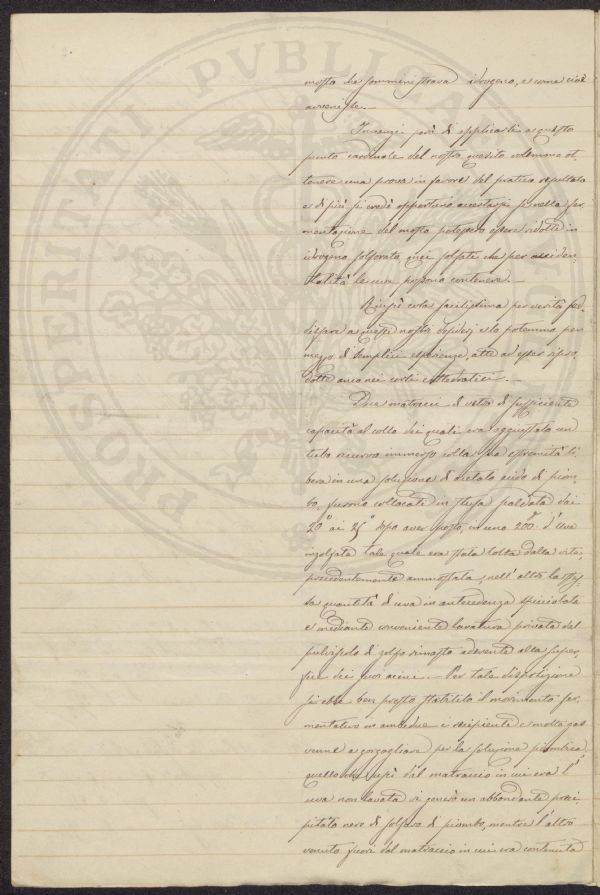 mosto che somministrava idrogeno, e come ciò
avvenisse.
Innanzi però di applicarsi a questo
punto cardinale del nostro quesito volemmo ot-
tenere una prova in favore del pratico resultato
e di più si credè opportuno accertarsi se nella fer-
mentazione del mosto potessero essere ridotti in
idrogeno solforato quei solfati che per acciden-
talità le uve possono contenere. —
Riuscì cosa facilissima per verità sod-
disfare a questi nostri desideri e lo potemmo per
mezzo di semplici esperienze, atte ad esser ripro-
dotte anco nei corsi cattedratici. —
Due matracci di vetro di sufficiente
capacità al collo dei quali era aggiustato un
tubo ricurvo immerso colla sua estremità li-
bera in una soluzione di acetato acido di piom-
bo, furono collocati in stufa scaldata dai
20° ai 25° dopo aver posto, in uno 200 d'Uva
inzolfata tale quale era stata tolta dalla vite,
precedentemente ammostata, nell'altro la stes-
sa quantità di uva in antecedenza spicciolata
e mediante conveniente lavatura privata del
pulviscolo di zolfo rimasto aderente alla super-
ficie dei suoi acini. — Per tale disposizione
si ebbe ben presto stabilito il movimento fer-
mentativo in ambedue i recipienti e molto gas
venne a gorgogliare per la soluzione piombica
quello che uscì dal matraccio in cui era l'
uva non lavata vi generò un abbondante preci-
pitato nero di solfuro di piombo, mentre l'altro
venuto fuori dal matraccio in cui era contenuta
PROSPERITATI PVBLICAE